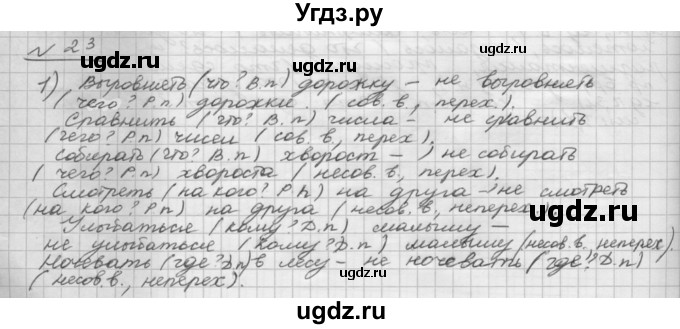 Угдз.ру
№ 23
1) Выровнять (что? В.п) дорожку – не выровнять
(чего? Р.п) дорожки. (сов. в., перех.).
Сравнить (что? В.п) числа – не сравнить
(чего? Р.п) чисел (сов. в., перех).
Собирать (что? В.п) хворост – не собирать
(чего? Р.п) хвороста (несов. в., перех).
Смотреть (на кого? Р.п) на друга – не смотреть
(на кого? Р.п) на друга (несов. в., неперех.)
Улыбаться (кому? Д.п) малышу –
не улыбаться (кому? Д.п) малышу (несов. в., неперех).
Ночевать (где? Д.п) в лесу – не ночевать (где? Д.п)
(несов. в., неперех).
ugdz.ru ugdz.ru ugdz.ru
ugdz.ru ugdz.ru
ugdz.ru ugdz.ru ugdz.ru
ugdz.ru ugdz.ru
ugdz.ru ugdz.ru ugdz.ru
Угдз.ру